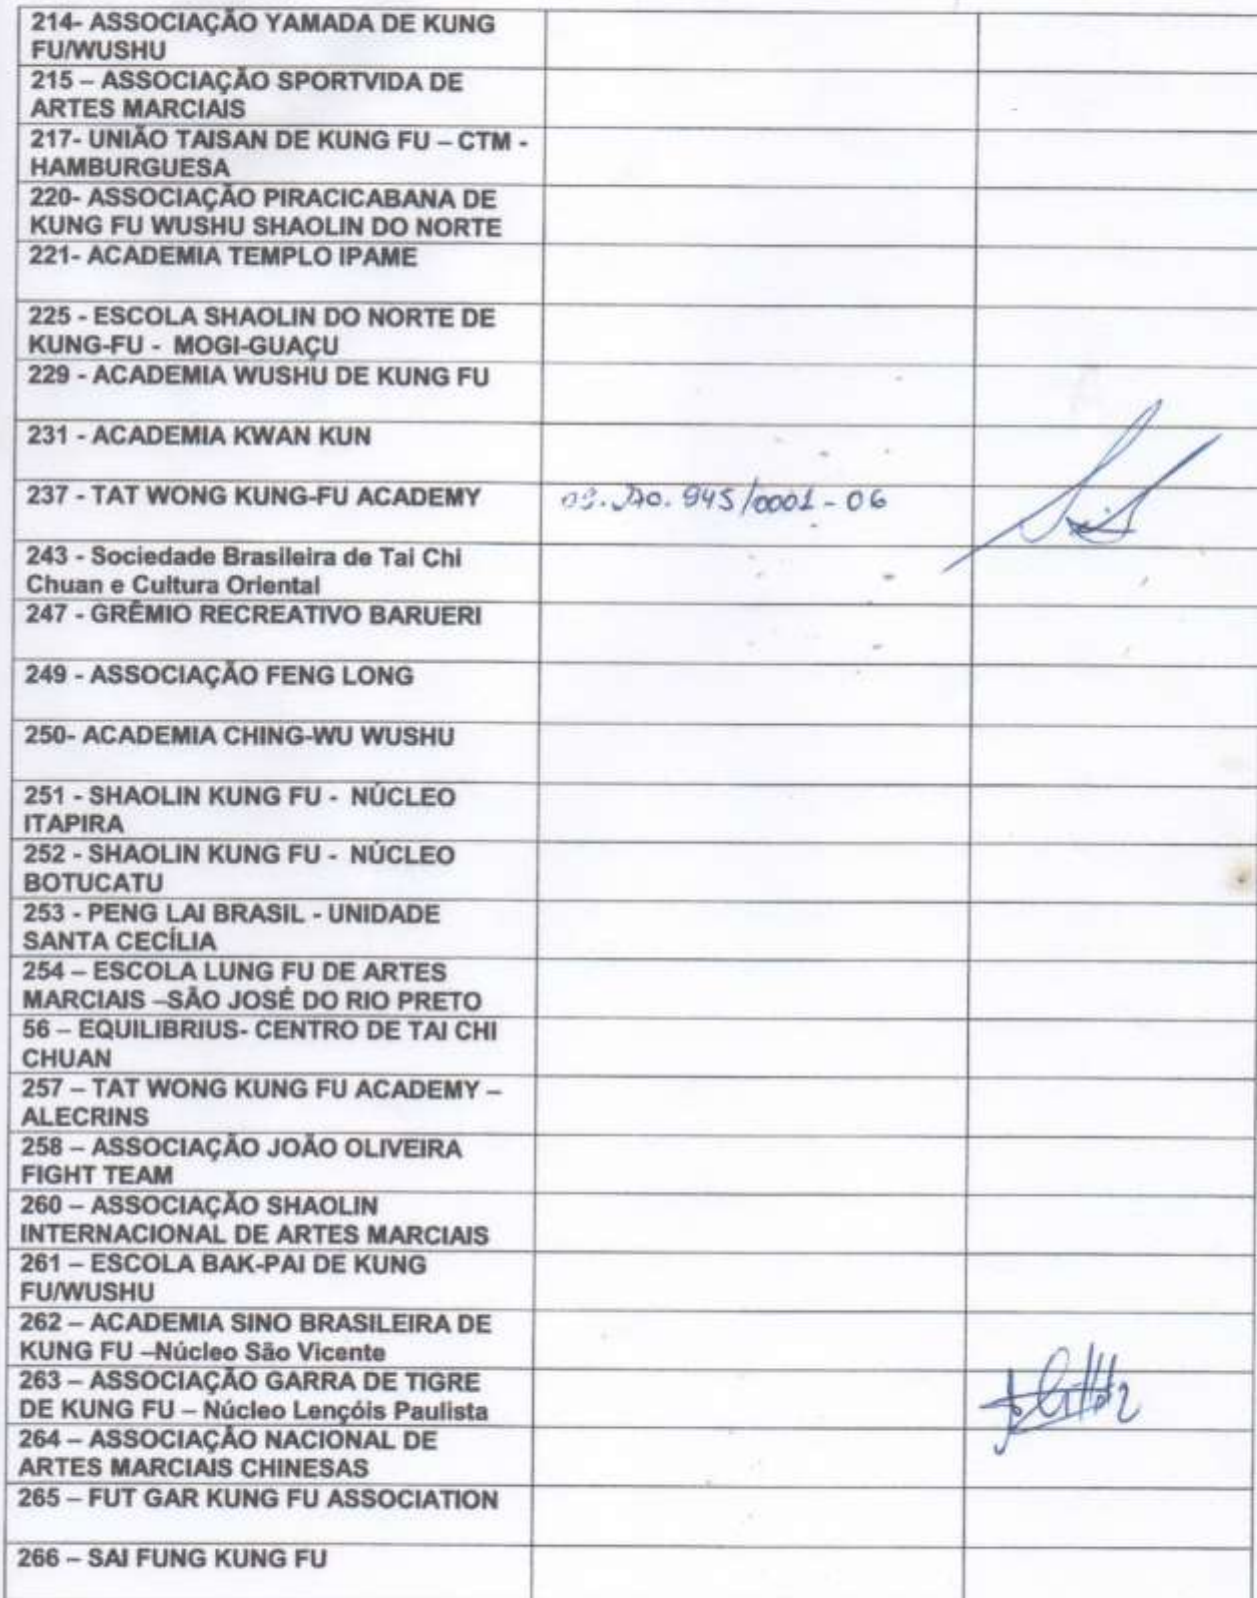 214- ASSOCIAÇÃO YAMADA DE KUNG
FU/WUSHU
215 – ASSOCIAÇÃO SPORTVIDA DE
ARTES MARCIAIS
217- UNIÃO TAISAN DE KUNG FU – CTM -
HAMBURGUESA
220- ASSOCIAÇÃO PIRACICABANA DE
KUNG FU WUSHU SHAOLIN DO NORTE
221- ACADEMIA TEMPLO IPAME
225 - ESCOLA SHAOLIN DO NORTE DE
KUNG-FU - MOGI-GUAÇU
229 - ACADEMIA WUSHU DE KUNG FU
231 - ACADEMIA KWAN KUN
237 - TAT WONG KUNG-FU ACADEMY 945/0001-06
243 - Sociedade Brasileira de Tai Chi
Chuan e Cultura Oriental
247 - GRÊMIO RECREATIVO BARUERI
249 - ASSOCIAÇÃO FENG LONG
250- ACADEMIA CHING-WU WUSHU
251 - SHAOLIN KUNG FU - NÚCLEO
ITAPIRA
252 - SHAOLIN KUNG FU - NÚCLEO
BOTUCATU
253 - PENG LAI BRASIL - UNIDADE
SANTA CECÍLIA
254 – ESCOLA LUNG FU DE ARTES
MARCIAIS –SÃO JOSÉ DO RIO PRETO
56 – EQUILIBRIUS- CENTRO DE TAI CHI
CHUAN
257 – TAT WONG KUNG FU ACADEMY –
ALECRINS
258 – ASSOCIAÇÃO JOÃO OLIVEIRA
FIGHT TEAM
260 – ASSOCIAÇÃO SHAOLIN
INTERNACIONAL DE ARTES MARCIAIS
261 – ESCOLA BAK-PAI DE KUNG
FU/WUSHU
262 – ACADEMIA SINO BRASILEIRA DE
KUNG FU –Núcleo São Vicente
263 – ASSOCIAÇÃO GARRA DE TIGRE
DE KUNG FU – Núcleo Lençóis Paulista
264 – ASSOCIAÇÃO NACIONAL DE
ARTES MARCIAIS CHINESAS
265 – FUT GAR KUNG FU ASSOCIATION
266 – SAI FUNG KUNG FU